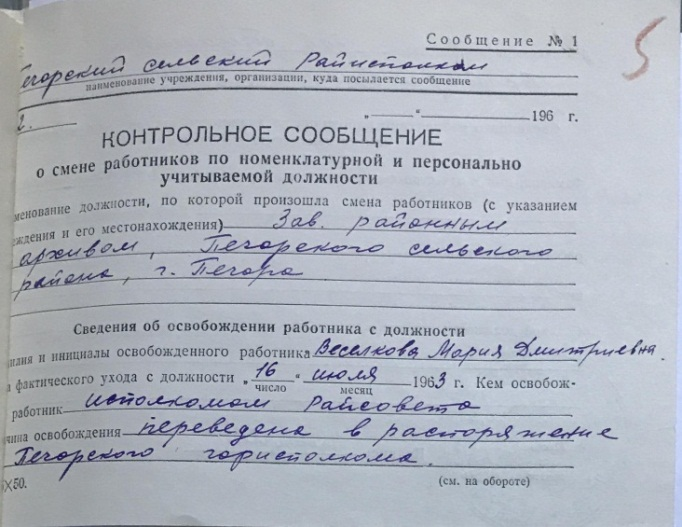 Сообщение № 1
5
Печорский сельский Райисполком
наименование учреждения, организации, куда посылается сообщение
2. „ “ 196 г.
КОНТРОЛЬНОЕ СООБЩЕНИЕ
о смене работников по номенклатурной и персонально
учитываемой должности
менование должности, по которой произошла смена работников (с указанием
еждения и его местонахождения) Зав. районным
архивом, Печорского сельского
района, г. Печора
Сведения об освобождении работника с должности
илия и инициалы освобожденного работника Веселкова Мария Дмитриевна.
а фактического ухода с должности „16“ июля 1963 г. Кем освобож-
число месяц
работник исполкомом Райсовета
чина освобождения переведена в распоряжение
Печорского горисполкома.
X50. (см. на обороте)